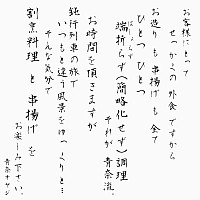 お客様にとって
せっかくの外食ですから
お造りも串揚げも全て
ひとつひとつ
はしょ
端折らず(簡略化せず)調理
それが青奈流。
お時間を頂きますが
鈍行列車の旅で
いつもと違う風景をゆっくりと…
そんな気分で
割烹料理と串揚げを
お楽しみ下さい。
青奈オヤジ